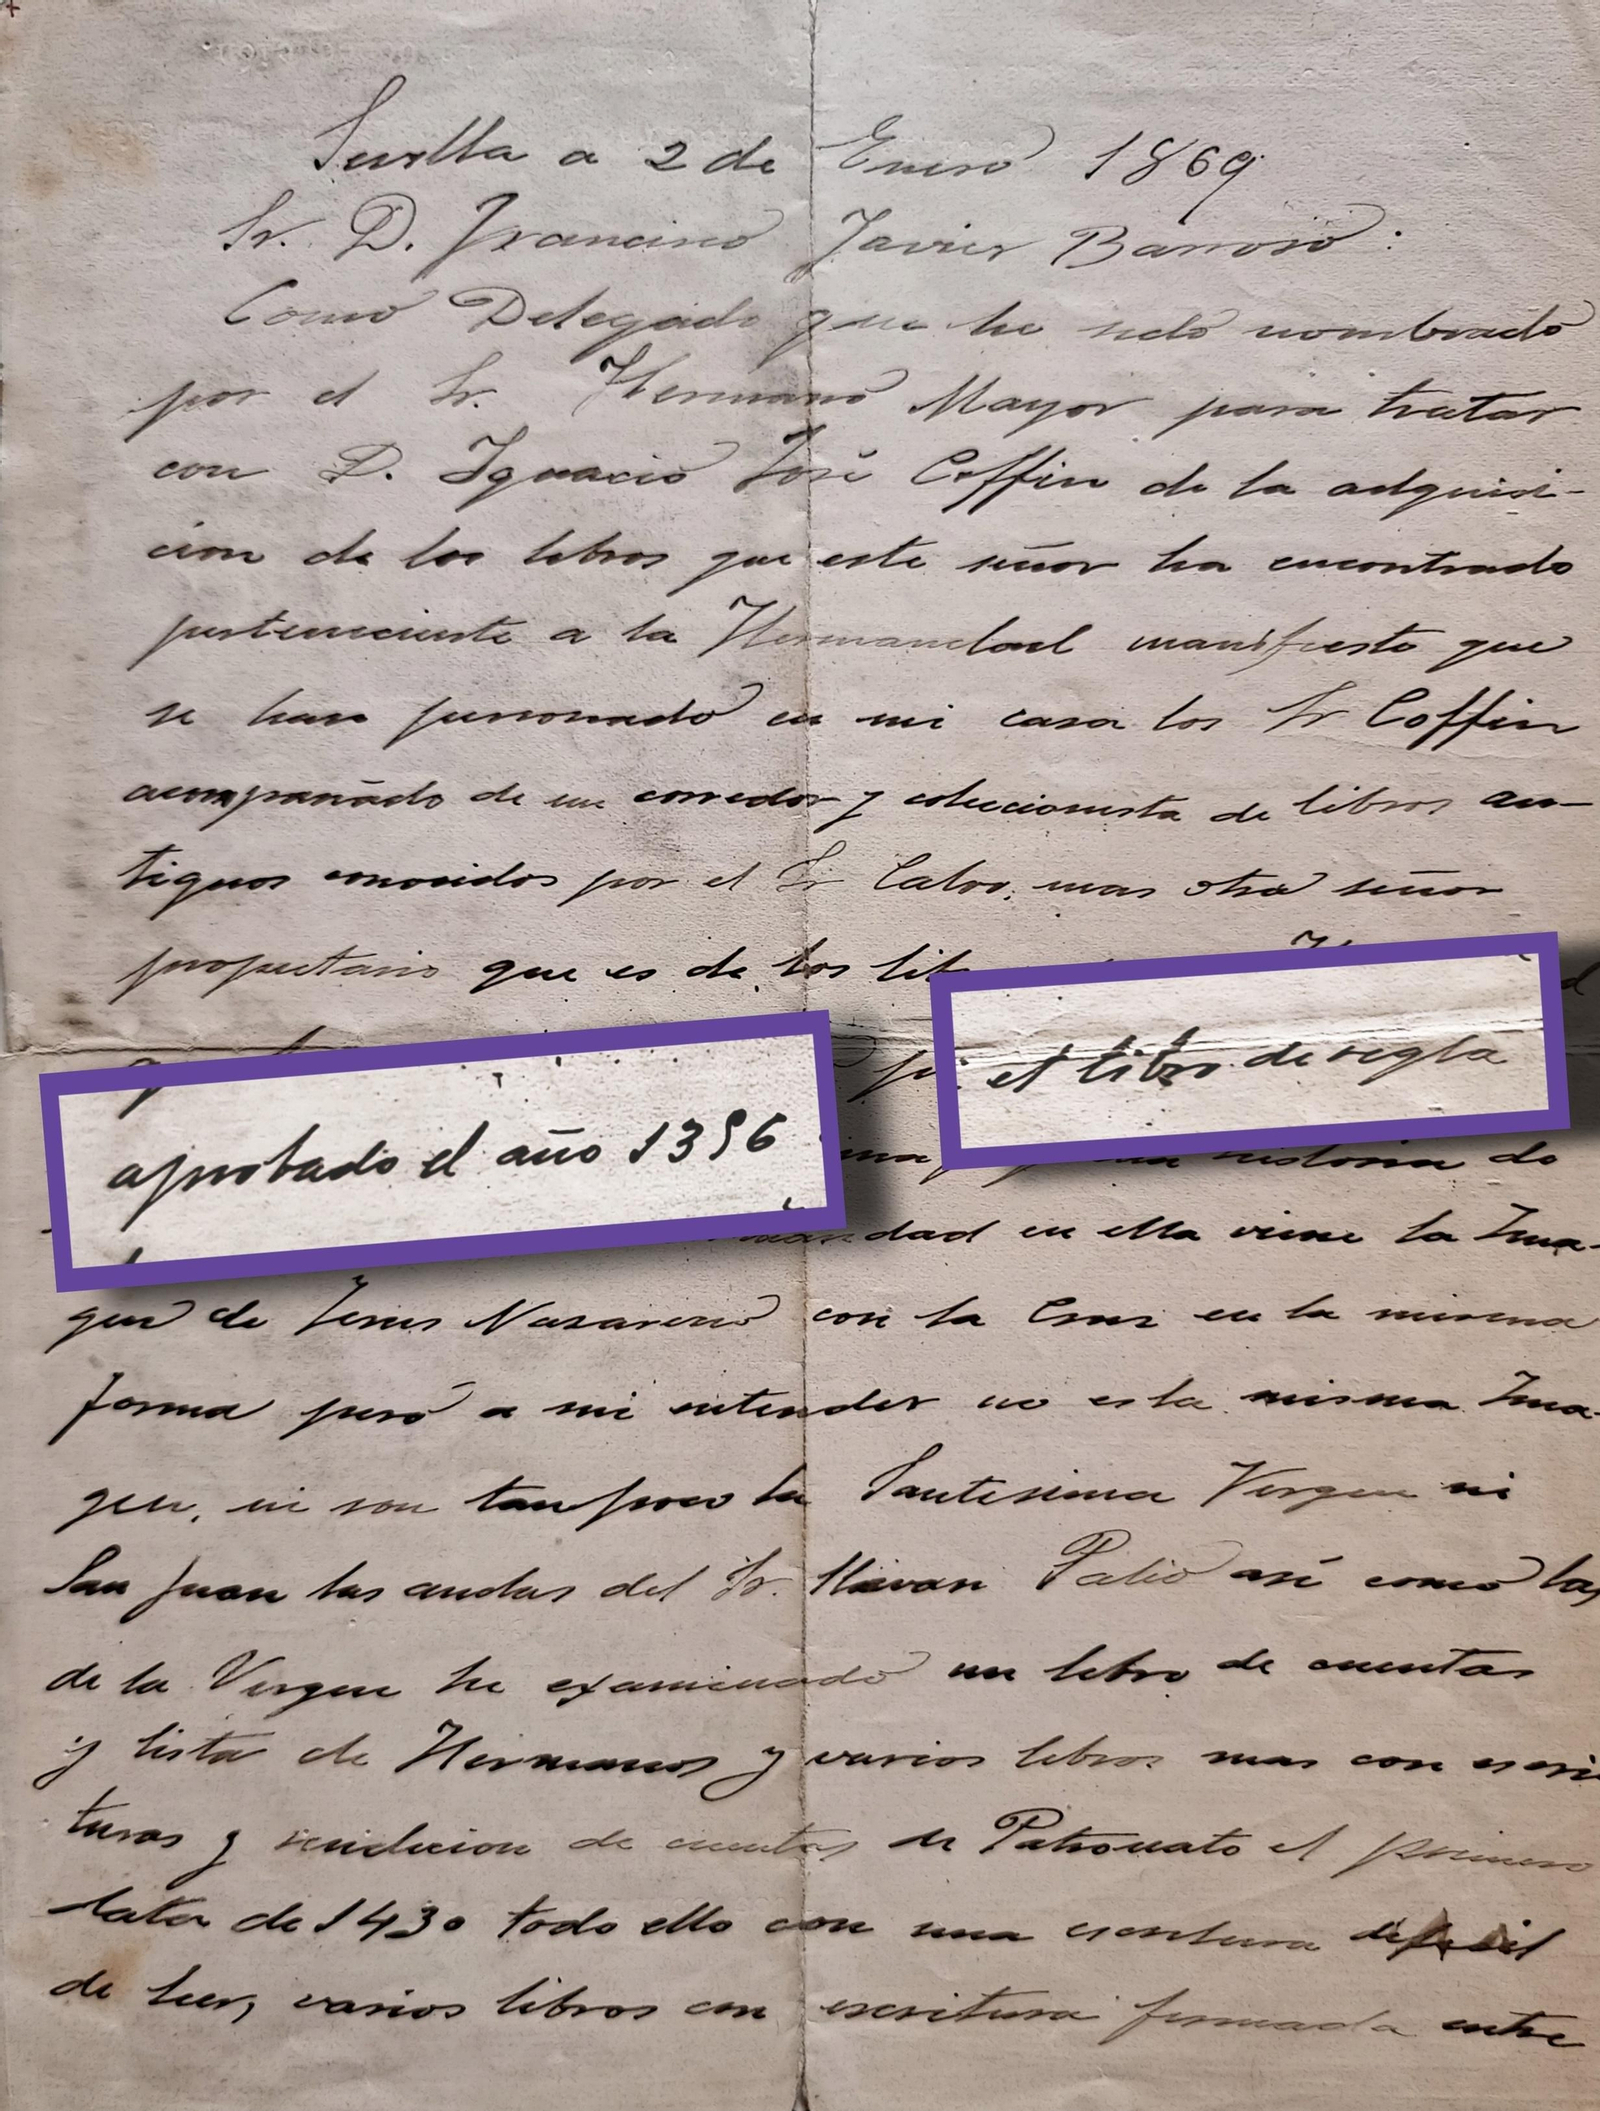 Sevilla a 2 de Enero 1869
Sr. D. Francisco Javier Barroso:
Como Delegado que he sido nombrado
por el Sr. Hermano Mayor para tratar
con D. Ignacio José Coffin de la adquisi-
cion de los libros que este señor ha encontrado
perteneciente a la Hermandad manifiesto que
se han personado en mi casa los Sr Coffin
acompañado de un corredor y coleccionista de libros an-
tiguos conocidos por el Sr Calvo, mas otro señor
propietario que es de los
el libro de regla
aprobado el año 1396
historia de
en ella viene la Ima-
gen de Jesus Nazareno con la Cruz en la misma
forma pero a mi entender no es la misma Ima-
gen, ni son tampoco la Santisima Virgen ni
San Juan las andas del Sr. llevan Palio asi como las
de la Virgen he examinado un libro de cuentas
y lista de Hermanos y varios libros mas con escri
turas y rendicion de cuentas de Patronato el primero
data de 1430 todo ello con una escritura dificil
de leer, varios libros con escritura firmada entre